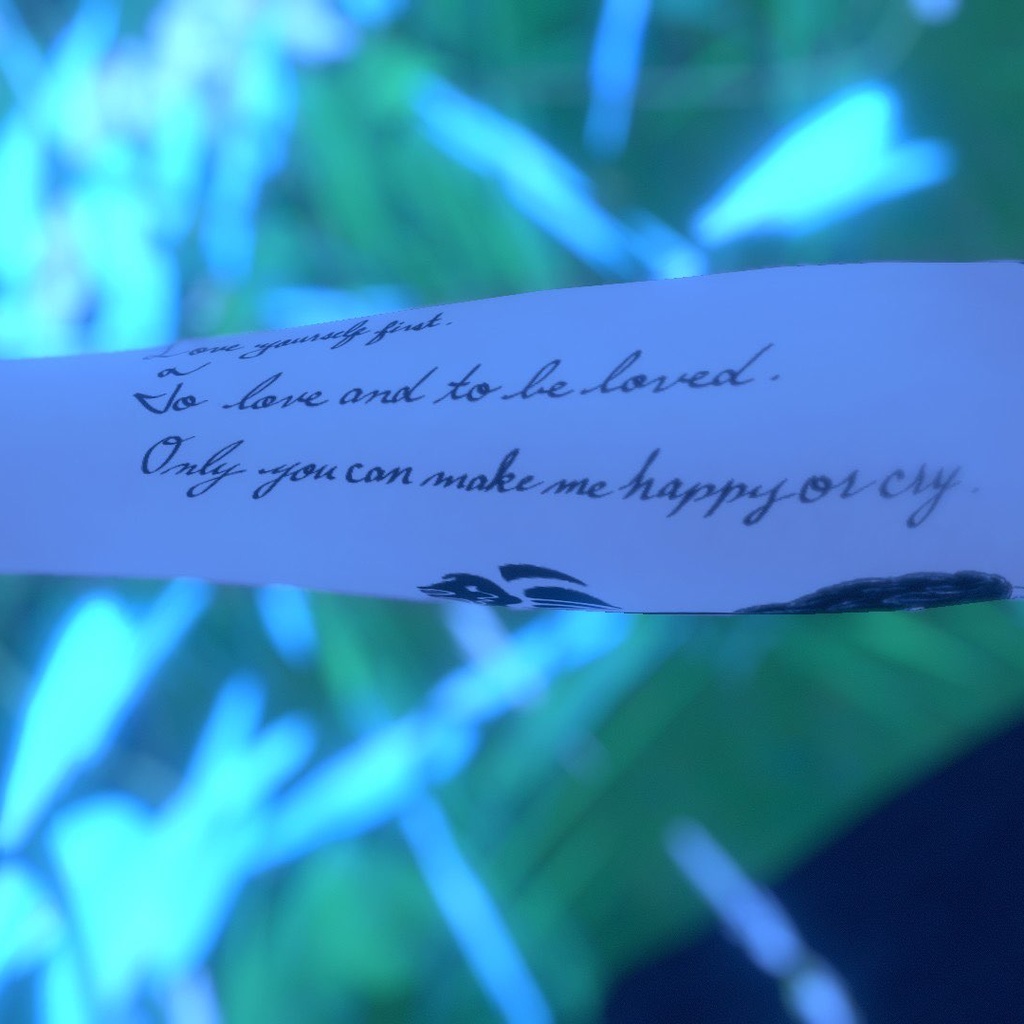 Love yourself first.
To love and to be loved.
Only you can make me happy or cry.